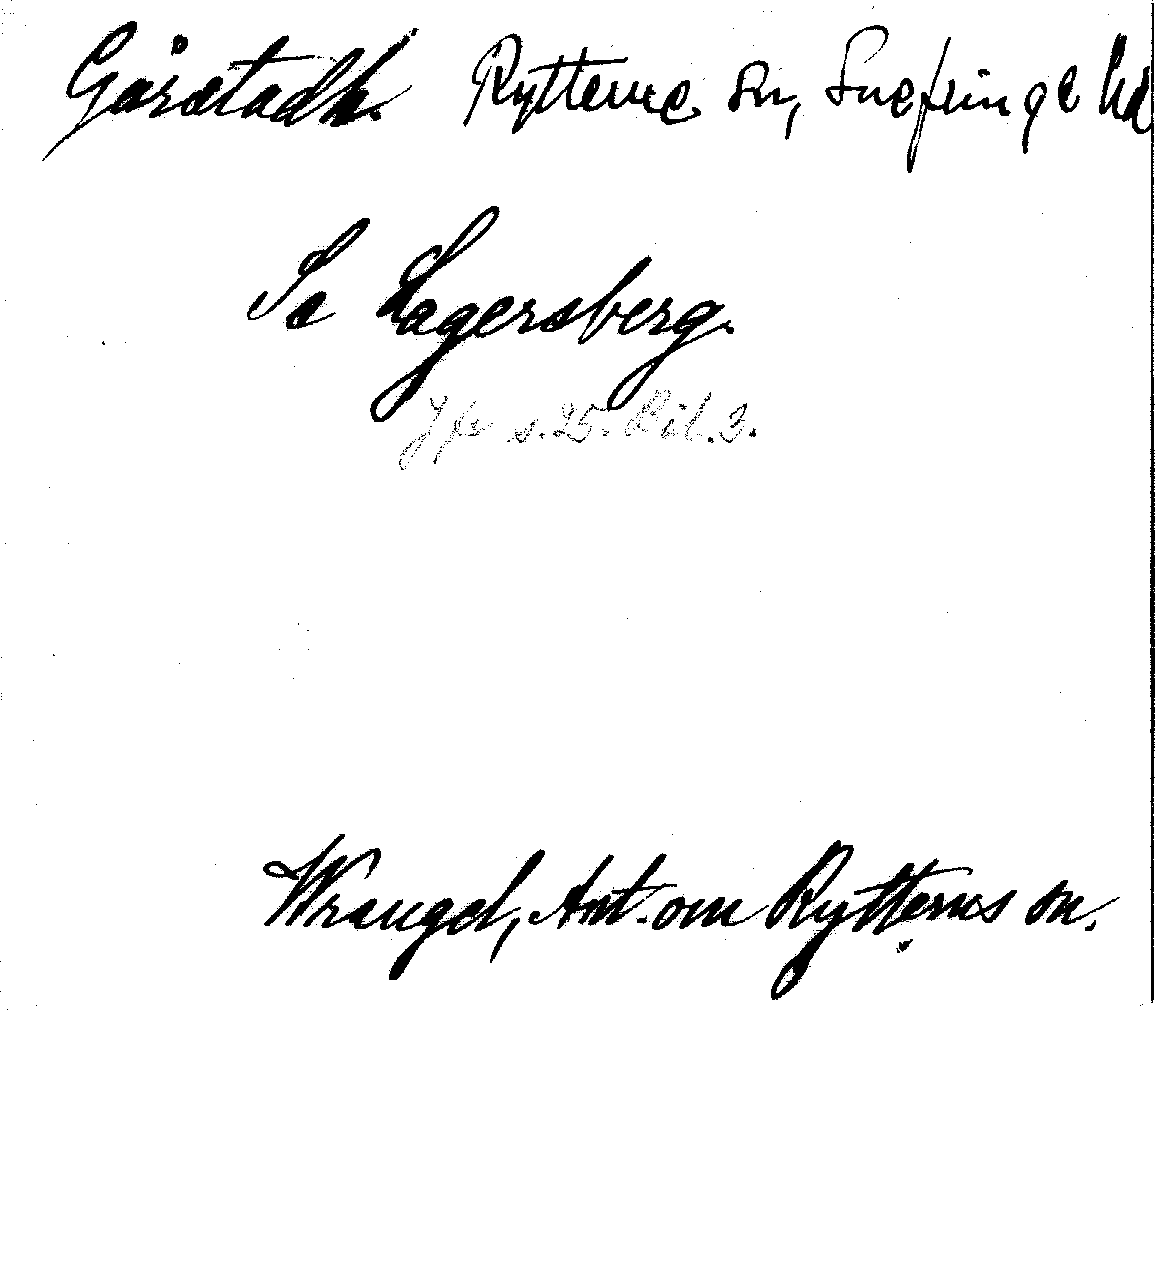 Gårstadh. Rytterne sn, Snefringe hd
Se Lagersberg.
Jfr s. 25. Bil. 3.
Wrangel, Ant. om Rytterns sn.